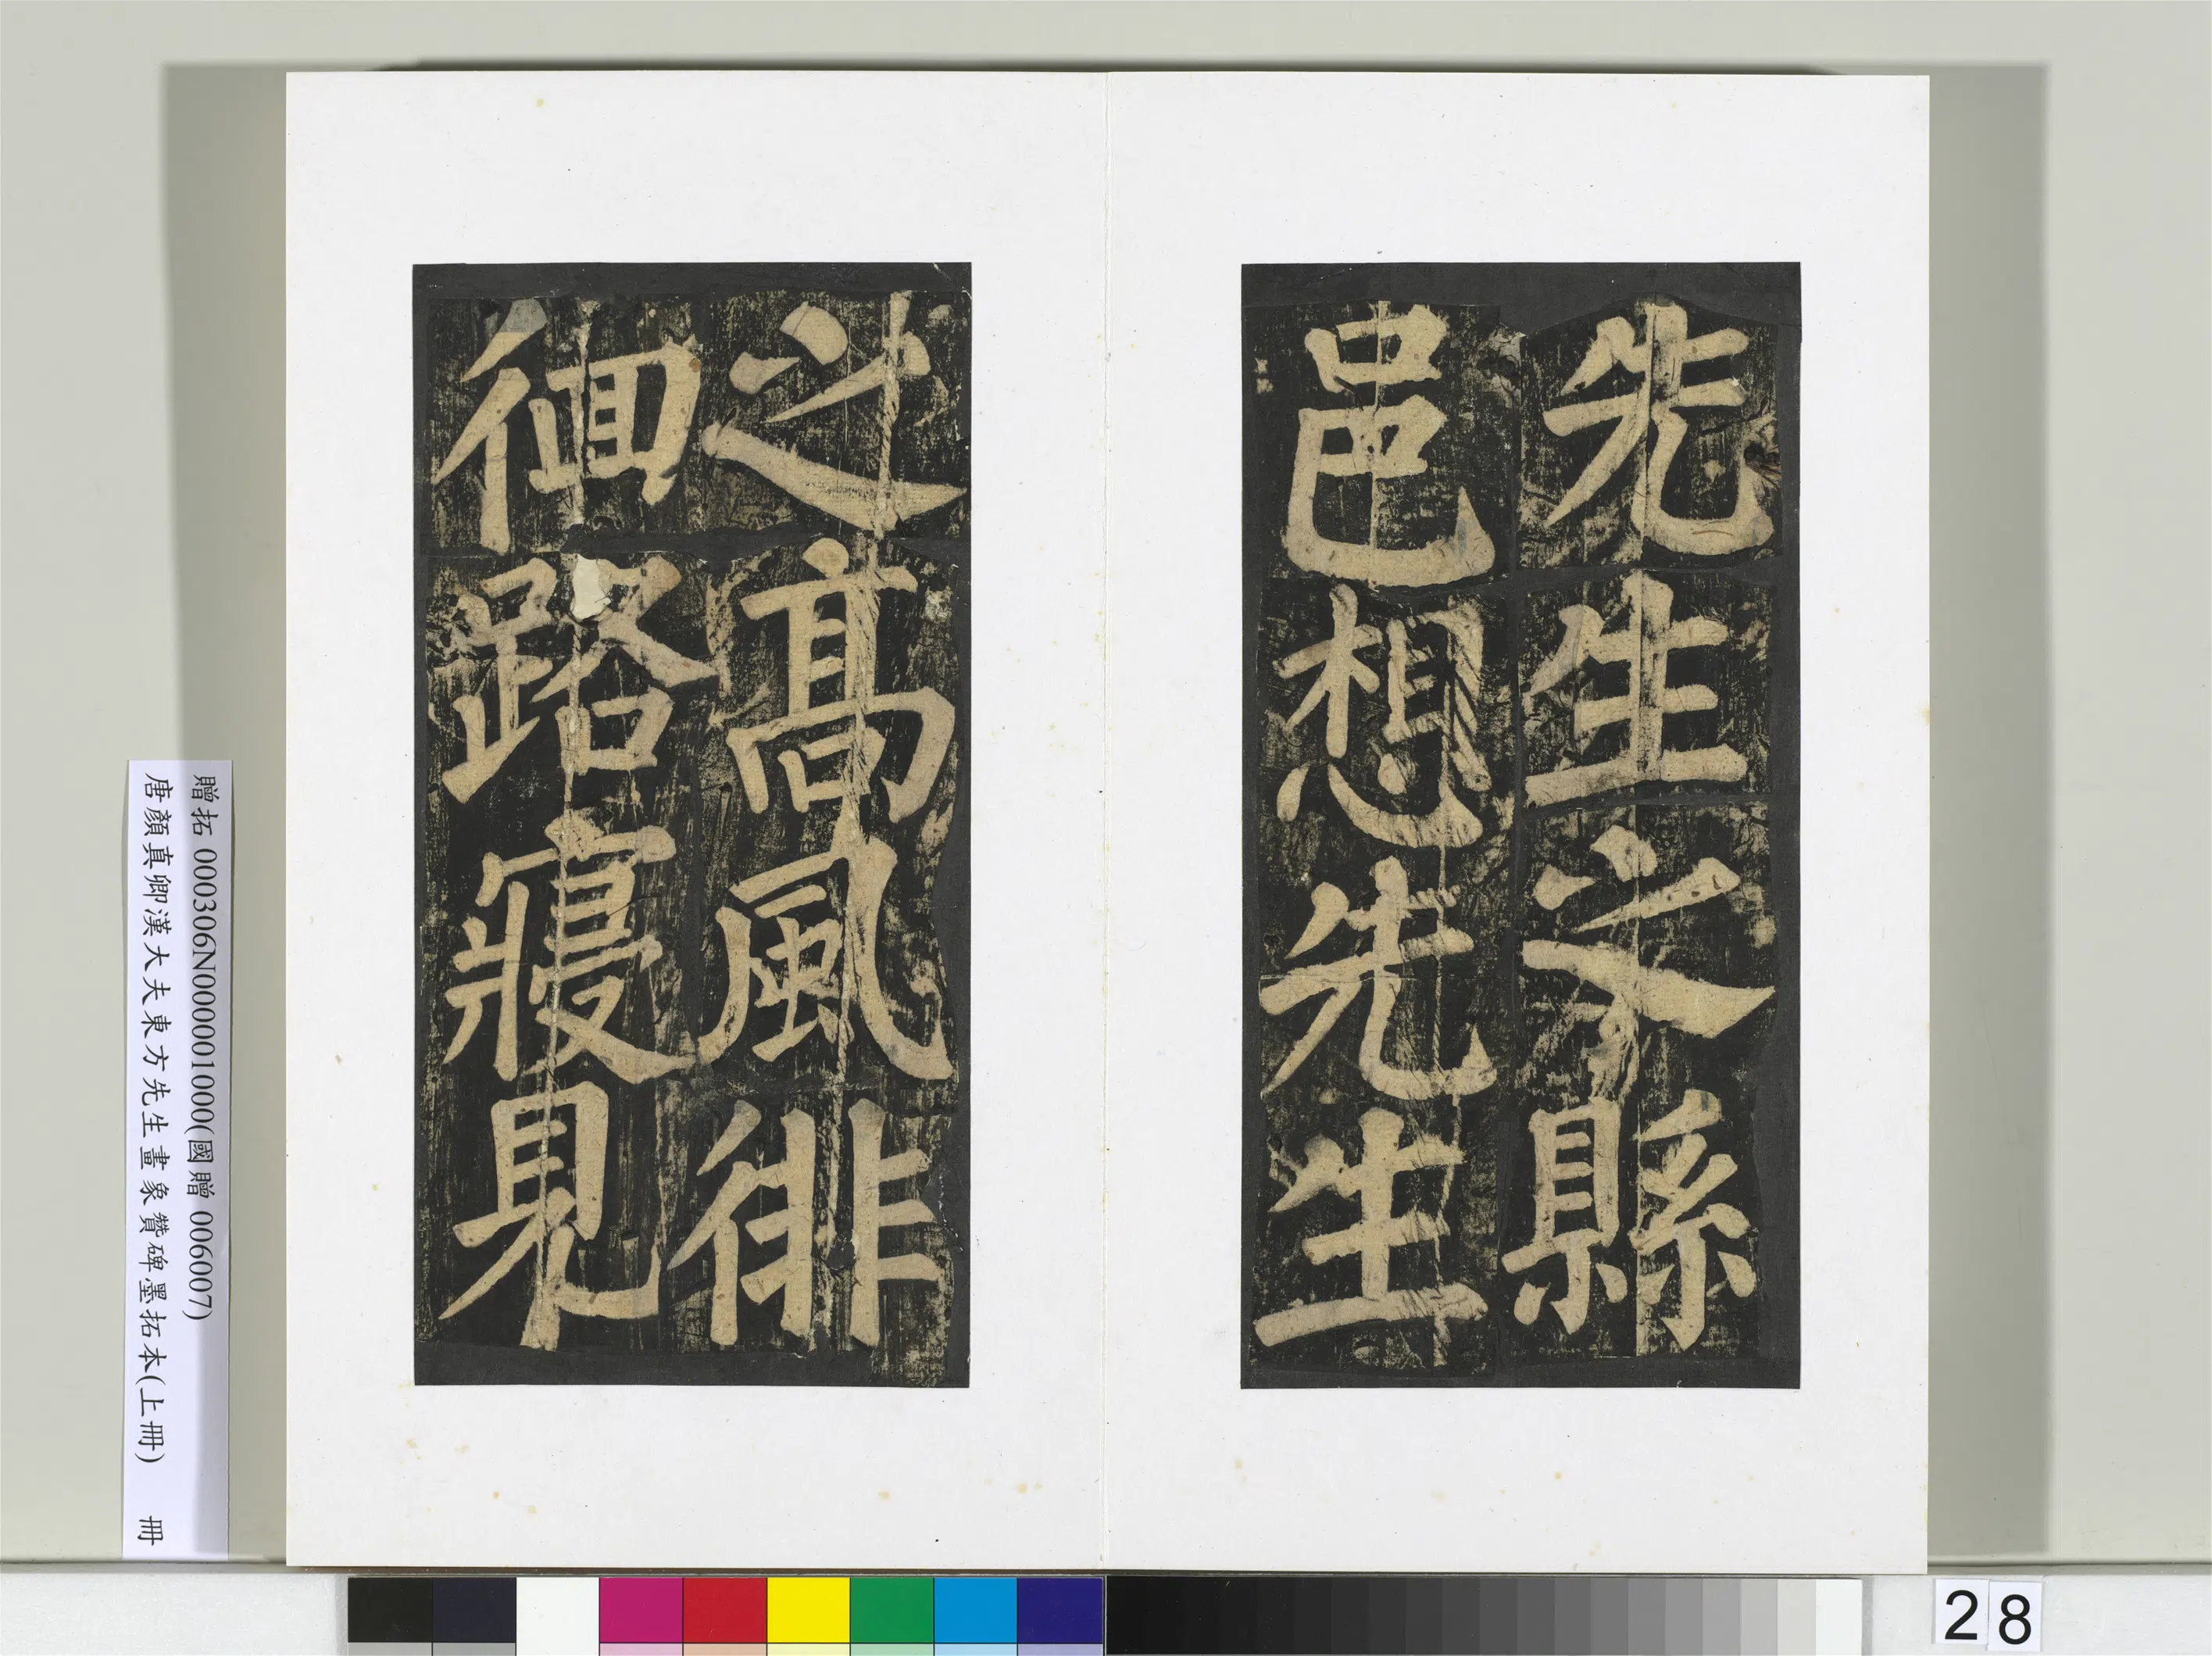 先生之縣
邑想先生
之高風徘
徊路寢見
贈拓 000306N000001000(國贈 006007)
唐顏真卿漢大夫東方先生畫象贊碑墨拓本(上冊) 冊
28